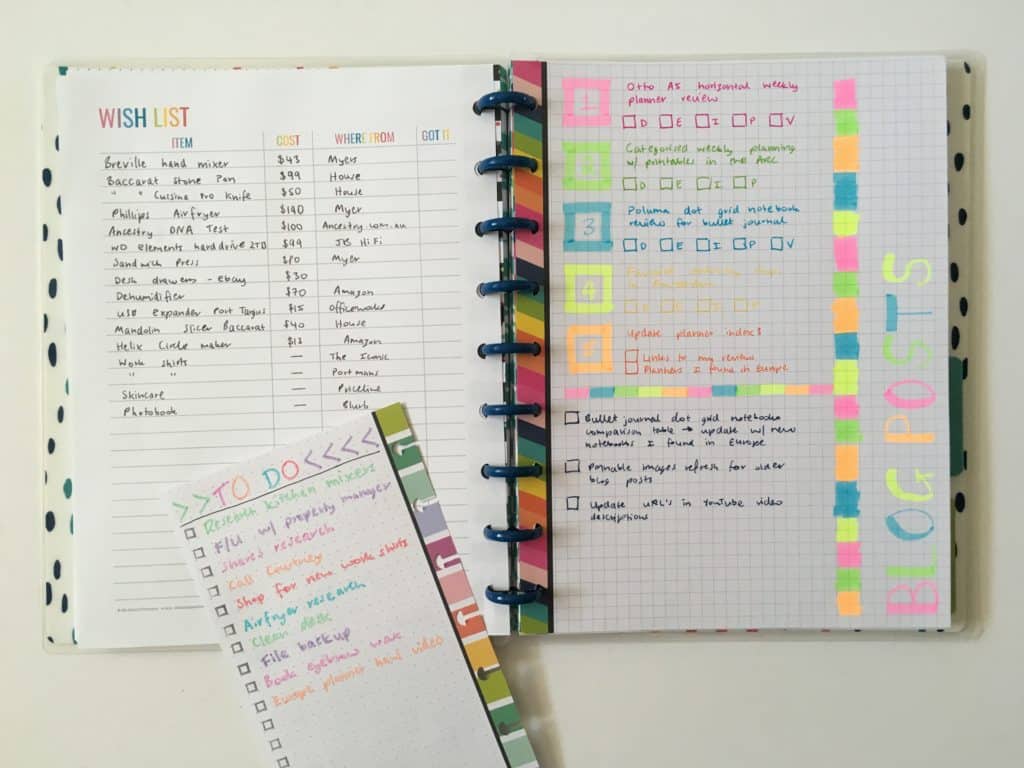 WISH LIST
ITEM COST WHERE FROM GOT IT
Breville hand mixer $43 Myers
Baccarat Stone Pan $99 House
" " Cuisine Pro Knife $50 House
Phillips Airfryer $190 Myer
Ancestry DNA Test $100 Ancestry.com.au
WD elements harddrive 2TB $99 JB HiFi
Sandwich Press Myer
Desk drawers - ebay $30
Dehumidifier $70 Amazon
USB expander Port Targus $15 Officeworks
Mandolin Slicer Baccarat $40 House
Helix Circle maker $13 Amazon
Work shirts — The Iconic
" " — Portmans
Skincare — Priceline
Photobook — Blurb
>>TO DO<<<<<
Research kitchen mixers
F/U w/ property manager
Shares research
Call Courtney
Shop for new work shirts
Airfryer research
Clean desk
File backup
Book eyebrow wax
Europe planner haul video
1
Otto A5 horizontal weekly
planner review
D E I P V
Categorised weekly planning
w/ printables in the ARC
D E I P
3
Poluma dot grid notebook
review for bullet journal
D E I P V
4
5
Update planner indexs
Links to my reviews
Planners I found in Europe
Bullet journal dot grid notebooks
comparison table → update w/ new
notebooks I found in Europe
Pinnable images refresh for older
blog posts
Update URL's in YouTube video
descriptions
BLOG POSTS